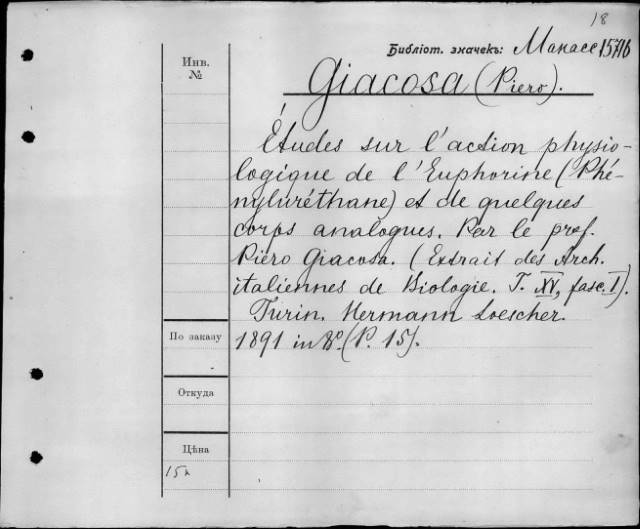 18
Библіот. значекъ: Манасс 15716
Инв. №
Giacosa (Piero).
Études sur l'action physio-
logique de l'Euphorine (Phé-
nyluréthane) et de quelques
corps analogues. Par le prof.
Piero Giacosa. (Extrait des Arch.
italiennes de Biologie. T. XV, fasc. I).
Turin. Hermann Loescher.
По заказу
1891 in 8º. (P. 15).
Откуда
Цѣна